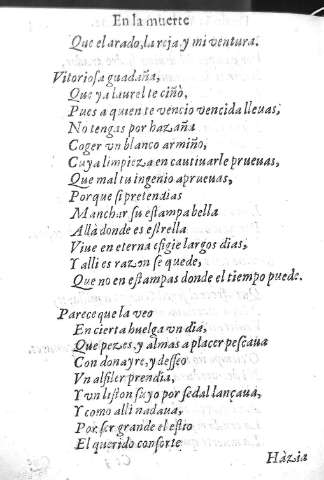 En la muerte
Que el arado, la reja, y mi ventura.
Vitoriosa guadaña,
Que ya laurel te ciño,
Pues a quien te vencio vencida lleuas,
No tengas por hazaña
Coger vn blanco armiño,
Cuya limpieza en cautiuarle prueuas,
Que mal tu ingenio aprueuas,
Porque si pretendias
Manchar su estampa bella
Allà donde es estrella
Viue en eterna efigie largos dias,
Y alli es razon se quede,
Que no en estampas donde el tiempo puede.
Parece que la veo
En cierta huelga vn dia,
Que pezes, y almas a placer pescaua
Con donayre, y desseo
Vn alfiler prendia,
Y vn liston suyo por sedal lançaua,
Y como alli nadaua,
Por ser grande el estio
El querido consorte
Hàzia